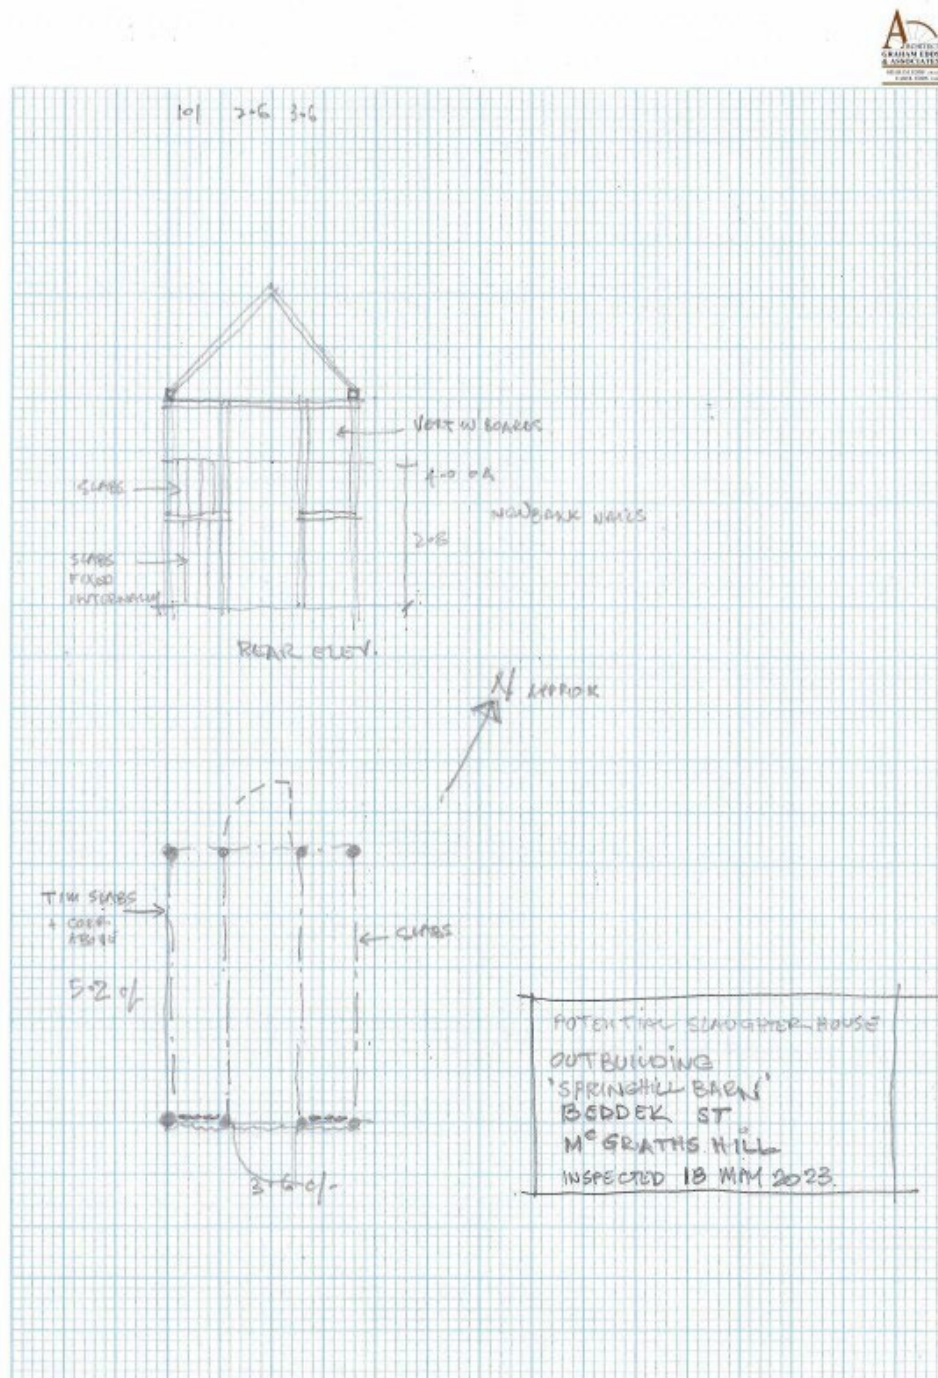 ARCHITECT
GRAHAM EDDS
& ASSOCIATES
101 2.6 3.6
VERT W BOARDS
SLABS
4.0 OA
NOWBANK NAILS
2.8
SLABS
FIXED
INTERNALLY
REAR ELEV.
N APPROX
TIM SLABS
+ CORR
ABOVE
SLABS
5.2 o/
3.6 o/-
POTENTIAL SLAUGHTER HOUSE
OUTBUILDING
'SPRINGHILL BARN'
BEDDEK ST
Mc GRATHS HILL
INSPECTED 18 MAY 2023.